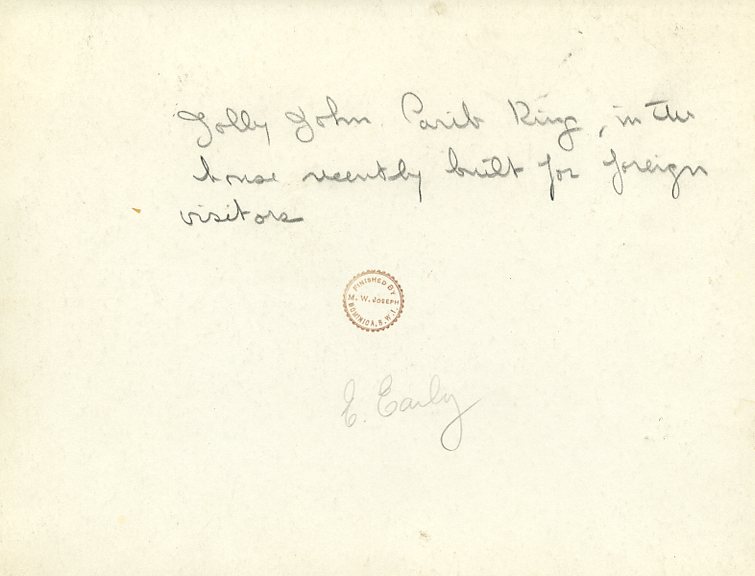 Jolly John Carib King, in the
house recently built for foreign
visitors
FINISHED BY
M. W. JOSEPH
DOMINICA, B.W.I.
E. Early